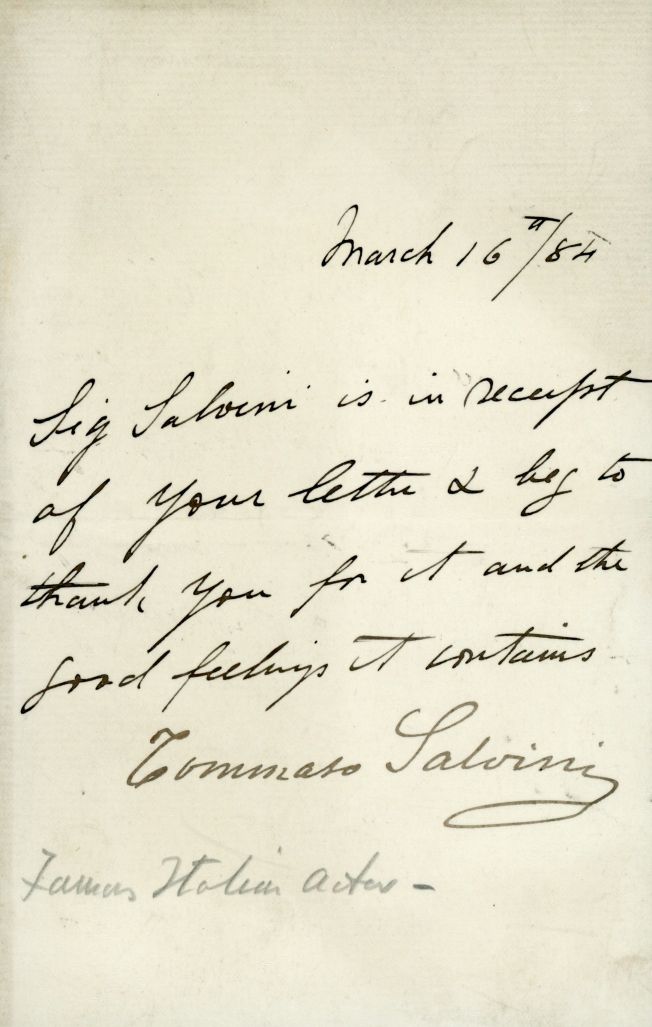 March 16th/84
Sig Salvini is in receipt
of your letter & beg to
thank you for it and the
good feelings it contains
Tommaso Salvini
Famous Italian Actor -